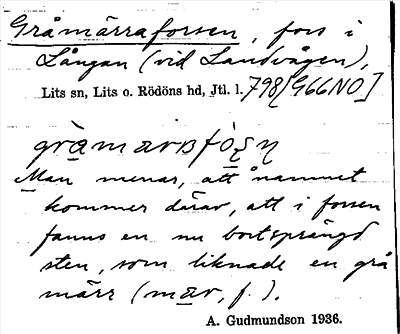 Gråmärraforsen, fors i
Långan (vid Landvågen),
Lits sn, Lits o. Rödöns hd, Jtl. l. 798[G66NO]
Man menar, att namnet
kommer därav, att i forsen
fanns en nu bortsprängd
sten, som liknade en grå
märr (mar, f.).
A. Gudmundson 1936.